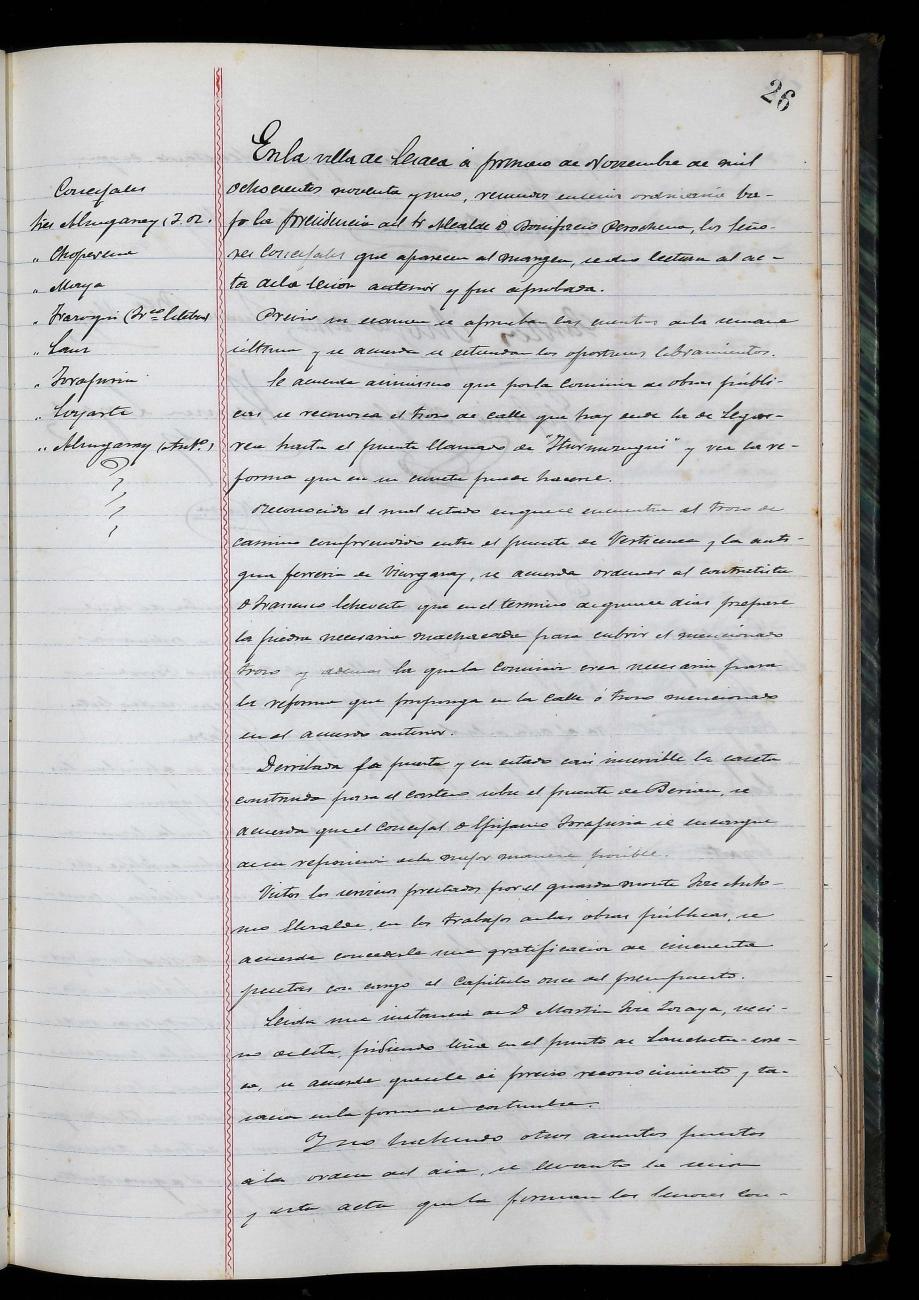 26
En la villa de Lesaca á primero de Noviembre de mil
ochocientos noventa y uno, reunidos en sesion ordinaria ba-
jo la presidencia del Sr Alcalde D Bonifacio Perochena, los Seño-
res Concejales que aparecen al margen, se dio lectura al ac-
ta de la sesion anterior y fue aprobada.
Concejales
Sres Almugaray (J.
" Choperena
" Maya
" Irazoqui
" Sanz
" Torajuria
" Loyarte
" Almugaray (Antº)
Previo su examen se aprueban las cuentas de la semana
ultima y se acuerda se estiendan los oportunos libramientos.
Se acuerda asimismo que por la Comision de obras públi-
cas se reconozca el trozo de calle que hay desde la de
hasta el puente llamado de y vea la re-
forma que en su cuneta puede hacerse.
Reconocido el mal estado en que se encuentra el trozo de
camino comprendido entre el puente de y la anti-
gua ferreria de se acuerda ordenar al contratista
D Francisco Echeveste que en el termino de quince dias prepare
la piedra necesaria machacada para cubrir el mencionado
trozo y ademas la que la Comision crea necesaria para
la reforma que proponga en la calle ó trozo mencionado
en el acuerdo anterior.
Derribada la puerta y en estado casi inservible la caseta
construida para el sobre el puente de se
acuerda que el Concejal D Epifanio Torajuria se encargue
de su reposicion de la mejor manera posible.
Vistos los servicios prestados por el guarda monte Jose Anto-
nio Elizalde, en los trabajos de las obras públicas, se
acuerda concederle una gratificacion de cincuenta
pesetas con cargo al Capitulo once del presupuesto.
Leida una instancia de D Martin Jose veci-
no de esta, pidiendo en el punto de
se acuerda que se le dé previo reconocimiento y ta-
sacion en la forma de costumbre.
Y no habiendo otros asuntos puestos
á la orden del dia, se levantó la sesion
y esta acta que la firman los Señores Con-